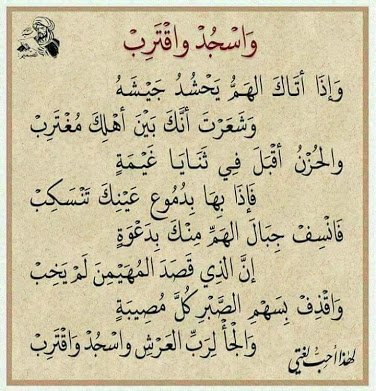 وَاسْجُدْ واقْتَرِبْ
وَإِذَا أَتَاكَ الهَمُّ يَحْشُدُ جَيْشَهُ
وَشَعَرْتَ أَنَّكَ بَيْنَ أَهْلِكَ مُغْتَرِبْ
والحُزْنُ أقْبَلَ فِي ثَنَايَا غَيْمَةٍ
فَإِذَا بِهَا بِدُمُوعِ عَيْنِكَ تَنْسَكِبْ
فَانْسِفْ جِبَالَ الهَمِّ مِنْكَ بِدَعْوَةٍ
إنَّ الذِي قَصَدَ المُهَيْمِنَ لَمْ يَخِبْ
وَاقْذِفْ بِسَهْمِ الصَّبْرِ كُلَّ مُصِيبَةٍ
وَالْجَأْ لِرَبِّ العَرْشِ وَاسْجُدْ وَاقْتَرِبْ
لهذا أحب لغتي